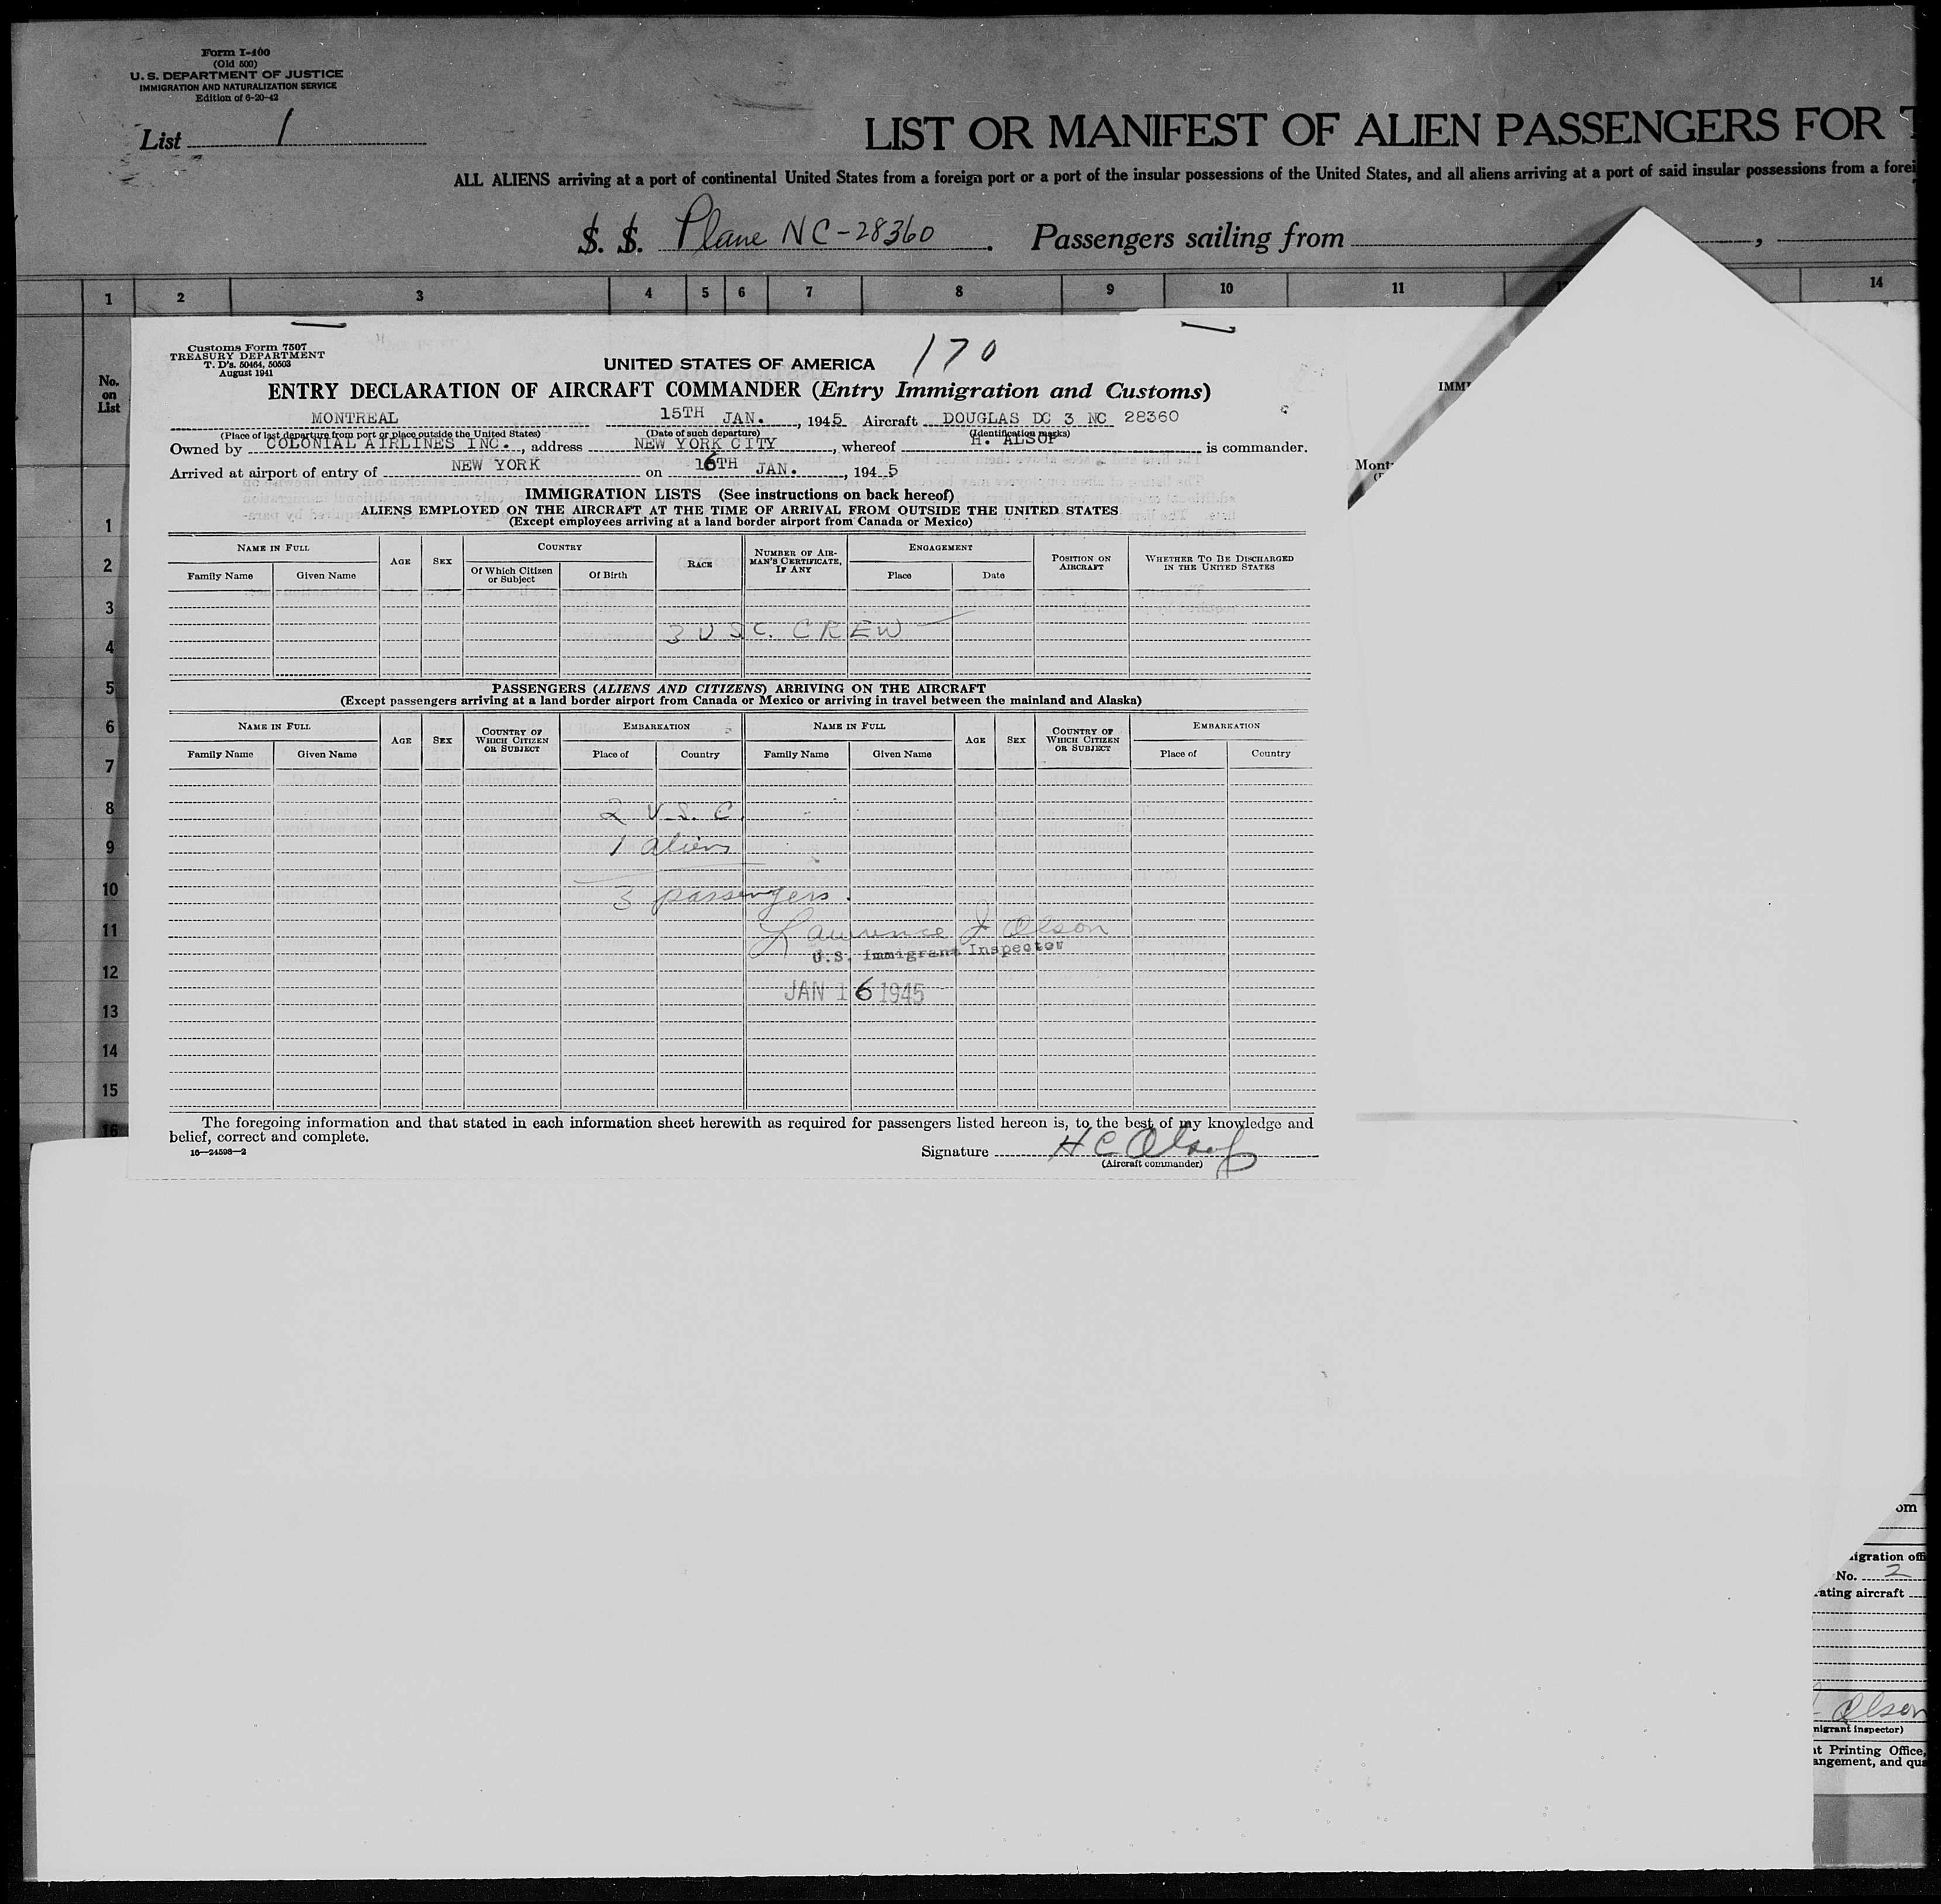 Form I-400
(Old 500)
U. S. DEPARTMENT OF JUSTICE
IMMIGRATION AND NATURALIZATION SERVICE
Edition of 6-20-42
List 1
LIST OR MANIFEST OF ALIEN PASSENGERS FOR T
ALL ALIENS arriving at a port of continental United States from a foreign port or a port of the insular possessions of the United States, and all aliens arriving at a port of said insular possessions from a forei
S. S. Plane NC-28360 . Passengers sailing from ,
1 2 3 4 5 6 7 8 9 10 11 14
No.
on
List
IMM
Mont
1
2
3
4
5
6
7
8
9
10
11
12
13
14
15
16
Customs Form 7507
TREASURY DEPARTMENT
T. D's. 50464, 50503
August 1941
UNITED STATES OF AMERICA
170
ENTRY DECLARATION OF AIRCRAFT COMMANDER (Entry Immigration and Customs)
MONTREAL 15TH JAN. , 1945 Aircraft DOUGLAS DC 3 NC 28360
(Place of last departure from port or place outside the United States) (Date of such departure) (Identification marks)
Owned by COLONIAL AIRLINES INC. , address NEW YORK CITY , whereof H. ALSOP is commander.
Arrived at airport of entry of NEW YORK on 16TH JAN. , 1945
IMMIGRATION LISTS (See instructions on back hereof)
ALIENS EMPLOYED ON THE AIRCRAFT AT THE TIME OF ARRIVAL FROM OUTSIDE THE UNITED STATES
(Except employees arriving at a land border airport from Canada or Mexico)
NAME IN FULL AGE SEX COUNTRY RACE NUMBER OF AIR-MAN'S CERTIFICATE, IF ANY ENGAGEMENT POSITION ON AIRCRAFT WHETHER TO BE DISCHARGED IN THE UNITED STATES
Family Name Given Name Of Which Citizen or Subject Of Birth Place Date
3 U SC. CREW
PASSENGERS (ALIENS AND CITIZENS) ARRIVING ON THE AIRCRAFT
(Except passengers arriving at a land border airport from Canada or Mexico or arriving in travel between the mainland and Alaska)
NAME IN FULL AGE SEX COUNTRY OF WHICH CITIZEN OR SUBJECT EMBARKATION NAME IN FULL AGE SEX COUNTRY OF WHICH CITIZEN OR SUBJECT EMBARKATION
Family Name Given Name Place of Country Family Name Given Name Place of Country
2 U.S. C.
1 aliens
3 passengers.
Lawrence J Olson
U.S. Immigrant Inspector
JAN 16 1945
The foregoing information and that stated in each information sheet herewith as required for passengers listed hereon is, to the best of my knowledge and
belief, correct and complete.
16—24598-2
Signature H C Alsop
(Aircraft commander)
om
igration offi
No. 2
ating aircraft
Olson
migrant inspector)
t Printing Office,
angement, and qua